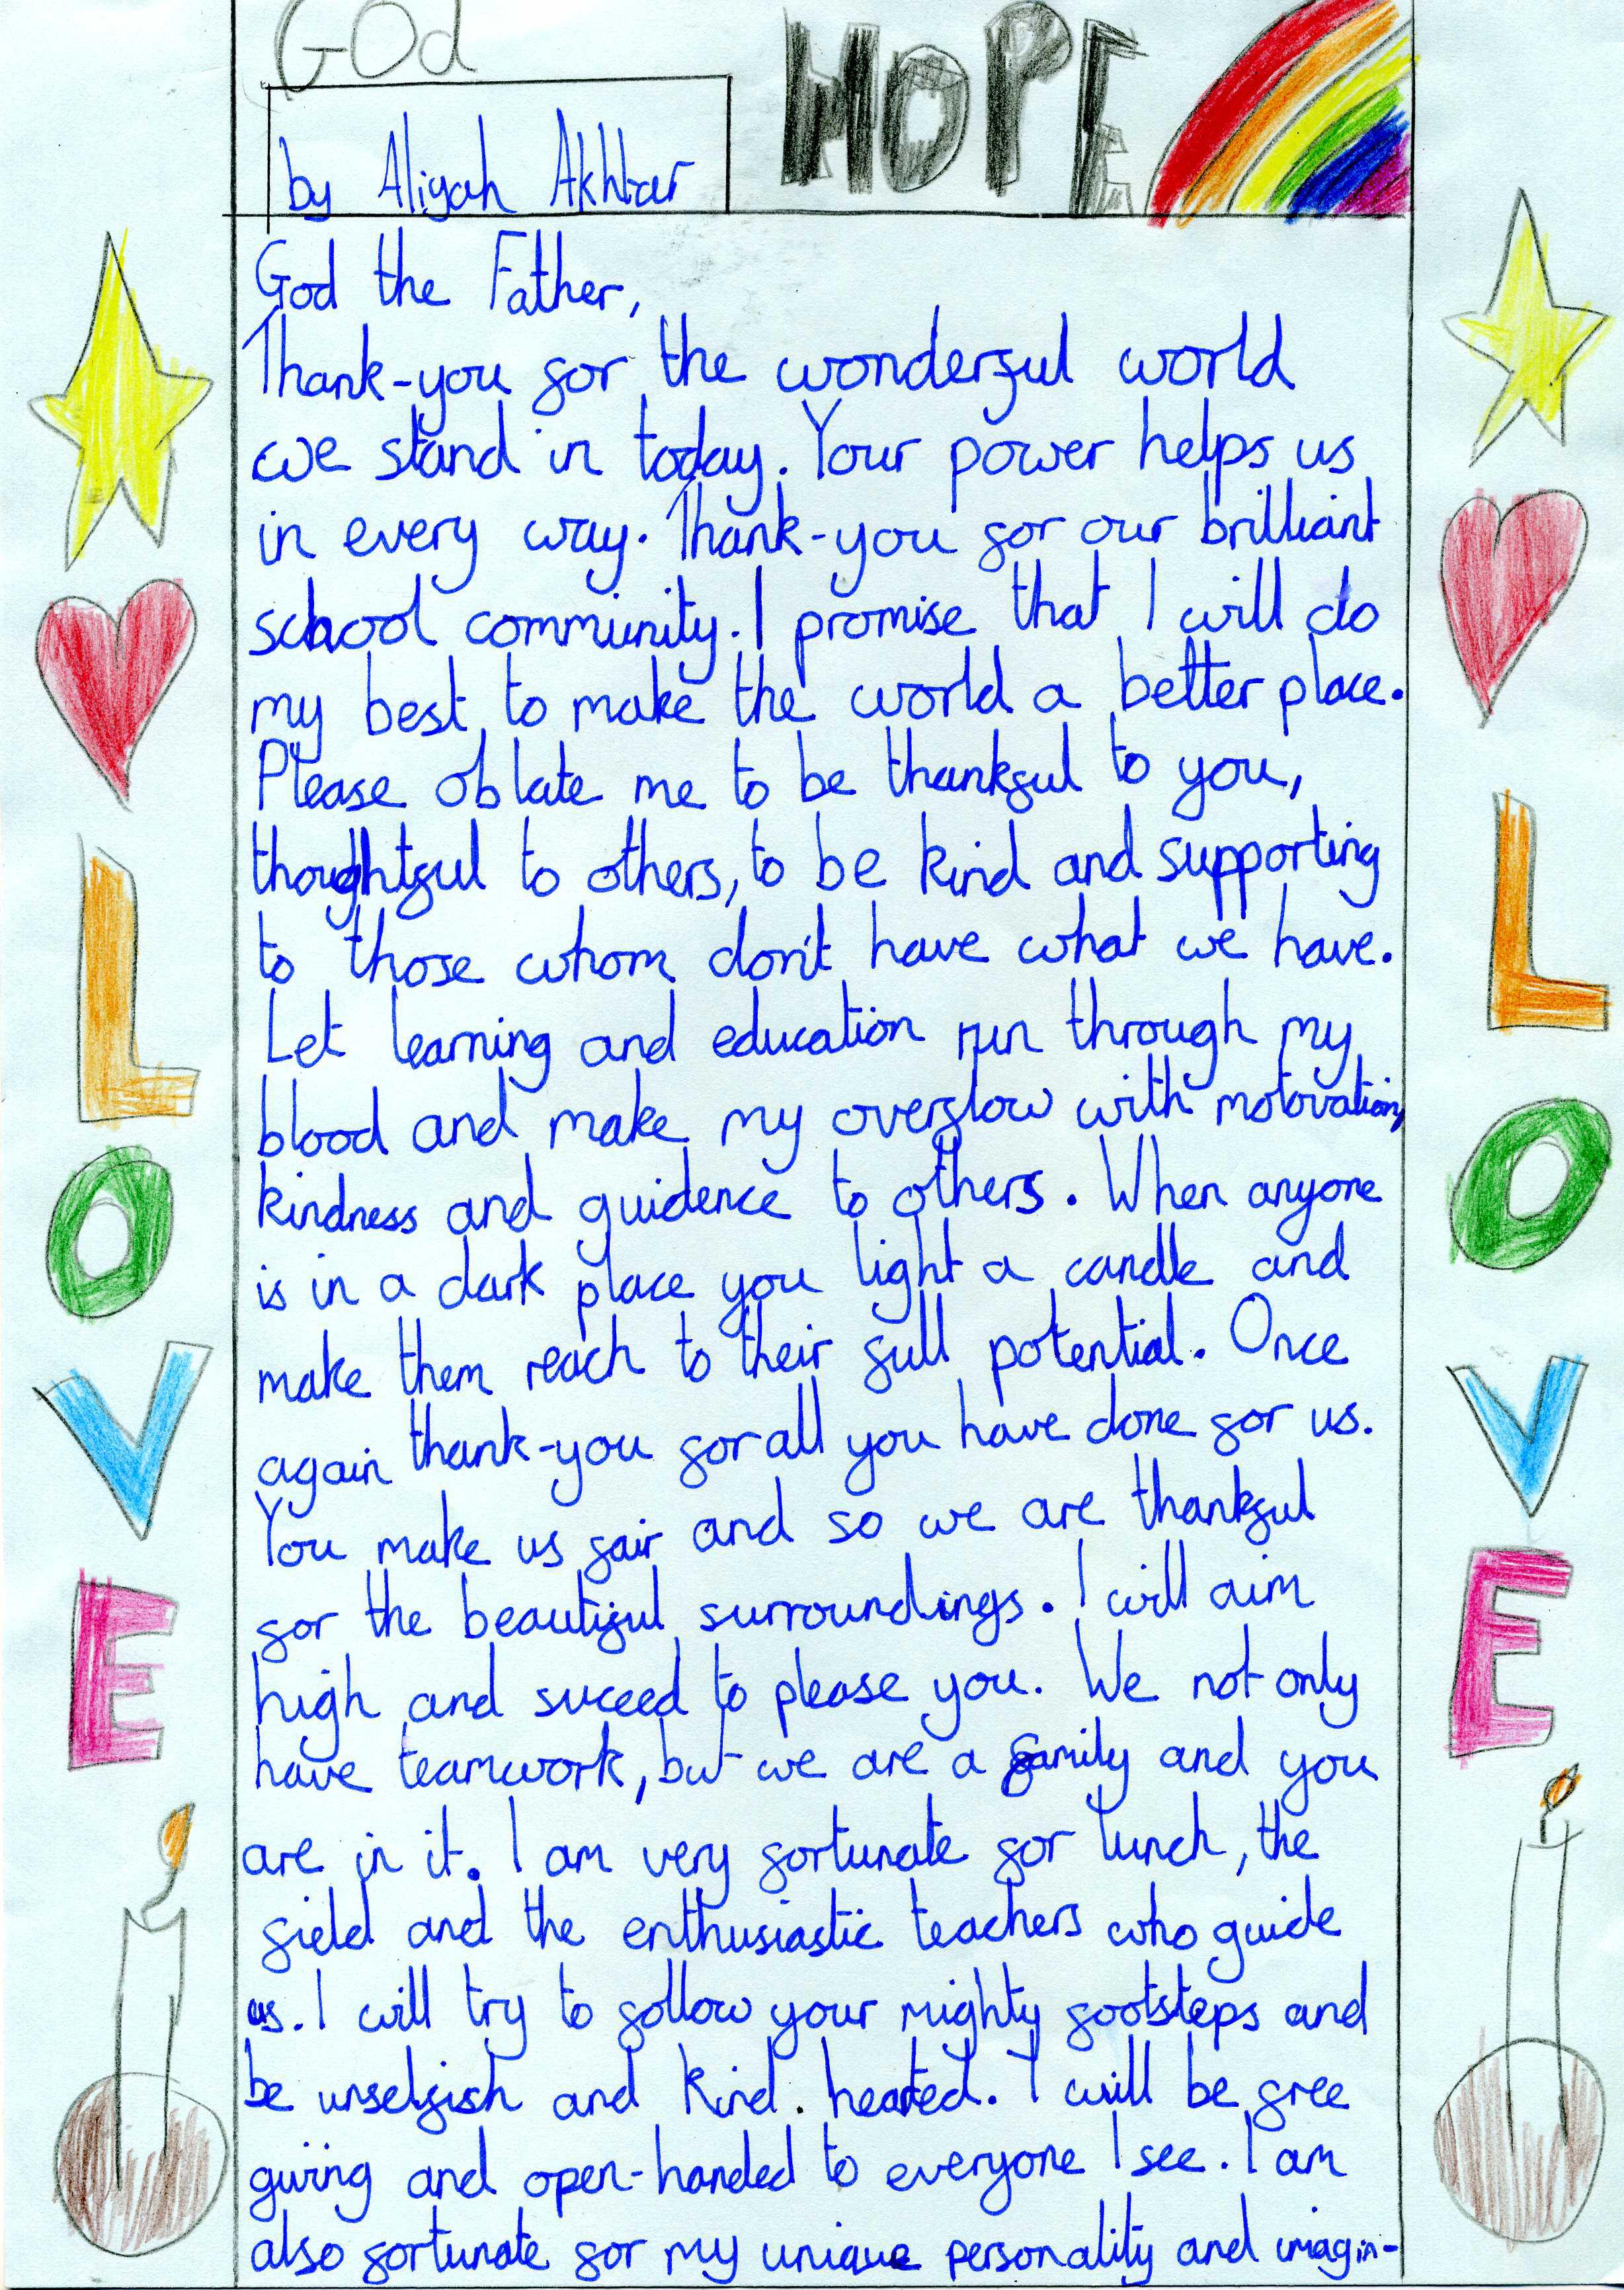 God
HOPE
by Aliyah Akhtar
God the Father,
Thank-you for the wonderful world
we stand in today. Your power helps us
in every way. Thank-you for our brilliant
school community. I promise that I will do
my best to make the world a better place.
Please oblate me to be thankful to you,
thoughtful to others, to be kind and supporting
to those whom don't have what we have.
Let learning and education run through my
blood and make my overflow with motovation,
kindness and guidence to others. When anyone
is in a dark place you light a candle and
make them reach to their full potential. Once
again thank-you for all you have done for us.
You make us fair and so we are thankful
for the beautiful surroundings. I will aim
high and suceed to please you. We not only
have teamwork, but we are a family and you
are in it. I am very fortunate for lunch, the
field and the enthusiastic teachers who guide
us. I will try to follow your mighty footsteps and
be unselfish and kind. hearted. I will be free
giving and open-handed to everyone I see. I am
also fortunate for my unique personality and imagin-
L
O
V
E
L
O
V
E